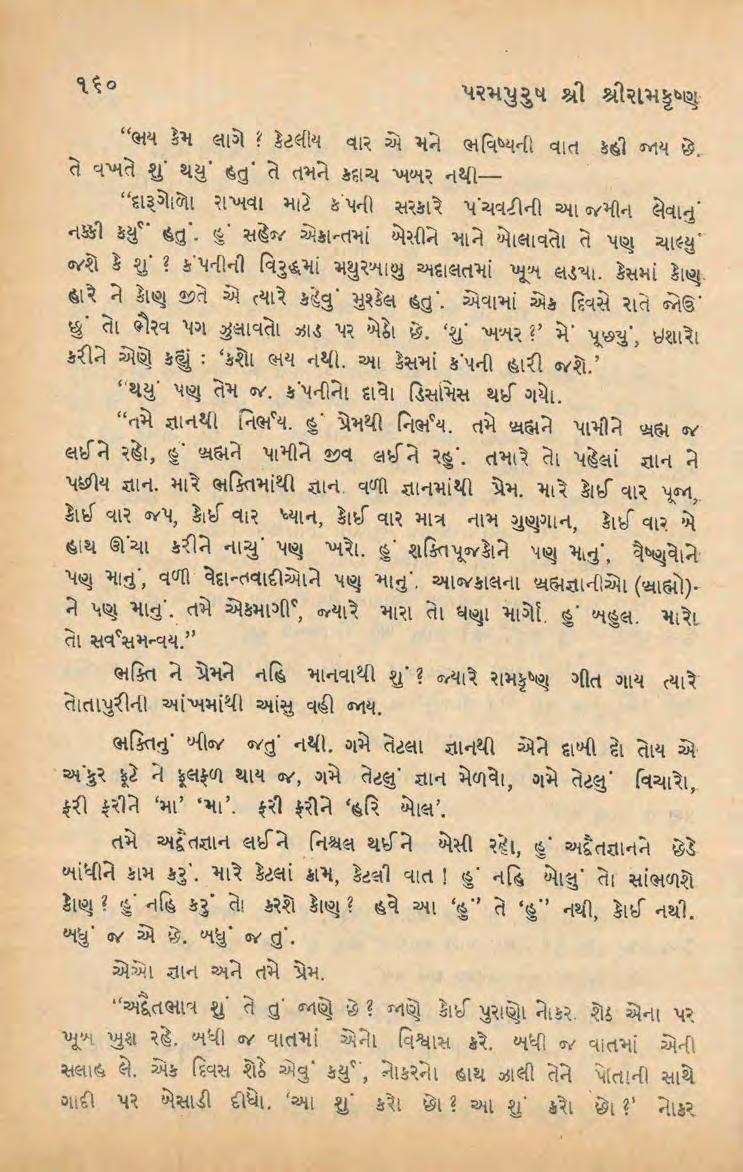 ૧૬૦
પરમપુરુષ શ્રી શ્રીરામકૃષ્ણ
“ભય કેમ લાગે ? કેટલીય વાર એ મને ભવિષ્યની વાત કહી જાય છે.
તે વખતે શું થયું હતું તે તમને કદાચ ખબર નથી—
“દારૂગોળો રાખવા માટે કંપની સરકારે પંચવટીની આ જમીન લેવાનું
નક્કી કર્યું હતું. હું સહેજ એકાન્તમાં બેસીને માને બોલાવતો તે પણ ચાલ્યું
જશે કે શું ? કંપનીની વિરુદ્ધમાં મથુરબાબુ અદાલતમાં ખૂબ લડયા. કેસમાં કોણ
હારે ને કોણ જીતે એ ત્યારે કહેવું મુશ્કેલ હતું. એવામાં એક દિવસે રાતે જોઉં
છું તો ભૈરવ પગ ઝુલાવતો ઝાડ પર બેઠો છે. ‘શું ખબર ?’ મેં પૂછયું, ઇશારો
કરીને એણે કહ્યું : ‘કશો ભય નથી. આ કેસમાં કંપની હારી જશે.’
“થયું પણ તેમ જ. કંપનીનો દાવો ડિસમિસ થઈ ગયો.
“તમે જ્ઞાનથી નિર્ભય. હું પ્રેમથી નિર્ભય. તમે બ્રહ્મને પામીને બ્રહ્મ જ
લઈને રહો, હું બ્રહ્મને પામીને જીવ લઈને રહું. તમારે તો પહેલાં જ્ઞાન ને
પછીય જ્ઞાન. મારે ભક્તિમાંથી જ્ઞાન વળી જ્ઞાનમાંથી પ્રેમ. મારે કોઈ વાર પૂજા,
કોઈ વાર જપ, કોઈ વાર ધ્યાન, કોઈ વાર માત્ર નામ ગુણગાન, કોઈ વાર બે
હાથ ઊંચા કરીને નાચું પણ ખરો. હું શક્તિપૂજકોને પણ માનું, વૈષ્ણવોને
પણ માનું, વળી વેદાન્તવાદીઓને પણ માનું. આજકાલના બ્રહ્મજ્ઞાનીઓ (બ્રાહ્મો)-
ને પણ માનું. તમે એકમાર્ગી, જ્યારે મારા તો ઘણા માર્ગો. હું બહુલ. મારો
તો સર્વસમન્વય.”
ભક્તિ ને પ્રેમને નહિ માનવાથી શું ? જ્યારે રામકૃષ્ણ ગીત ગાય ત્યારે
તોતાપુરીની આંખમાંથી આંસુ વહી જાય.
ભક્તિનું બીજ જતું નથી. ગમે તેટલા જ્ઞાનથી એને દાબી દો તોય એ
અંકુર ફૂટે ને ફૂલફળ થાય જ, ગમે તેટલું જ્ઞાન મેળવો, ગમે તેટલું વિચારો,
ફરી ફરીને ‘મા’ ‘મા’. ફરી ફરીને ‘હરિ બોલ’.
તમે અદ્વૈતજ્ઞાન લઈને નિશ્ચલ થઈને બેસી રહો, હું અદ્વૈતજ્ઞાનને છેડે
બાંધીને કામ કરું. મારે કેટલાં કામ, કેટલી વાત ! હું નહિ બોલું તો સાંભળશે
કોણ ? હું નહિ કરું તો કરશે કોણ ? હવે આ ‘હું’ તે ‘હું’ નથી, કોઈ નથી.
બધું જ એ છે. બધું જ તું.
એઓ જ્ઞાન અને તમે પ્રેમ.
“અદ્વૈતભાવ શું તે તું જાણે છે ? જાણે કોઈ પુરાણો નોકર. શેઠ એના પર
ખૂબ ખુશ રહે. બધી જ વાતમાં એનો વિશ્વાસ કરે. બધી જ વાતમાં એની
સલાહ લે. એક દિવસ શેઠે એવું કર્યું, નોકરનો હાથ ઝાલી તેને પોતાની સાથે
ગાદી પર બેસાડી દીધો. ‘આ શું કરો છો ? આ શું કરો છો ?’ નોકર